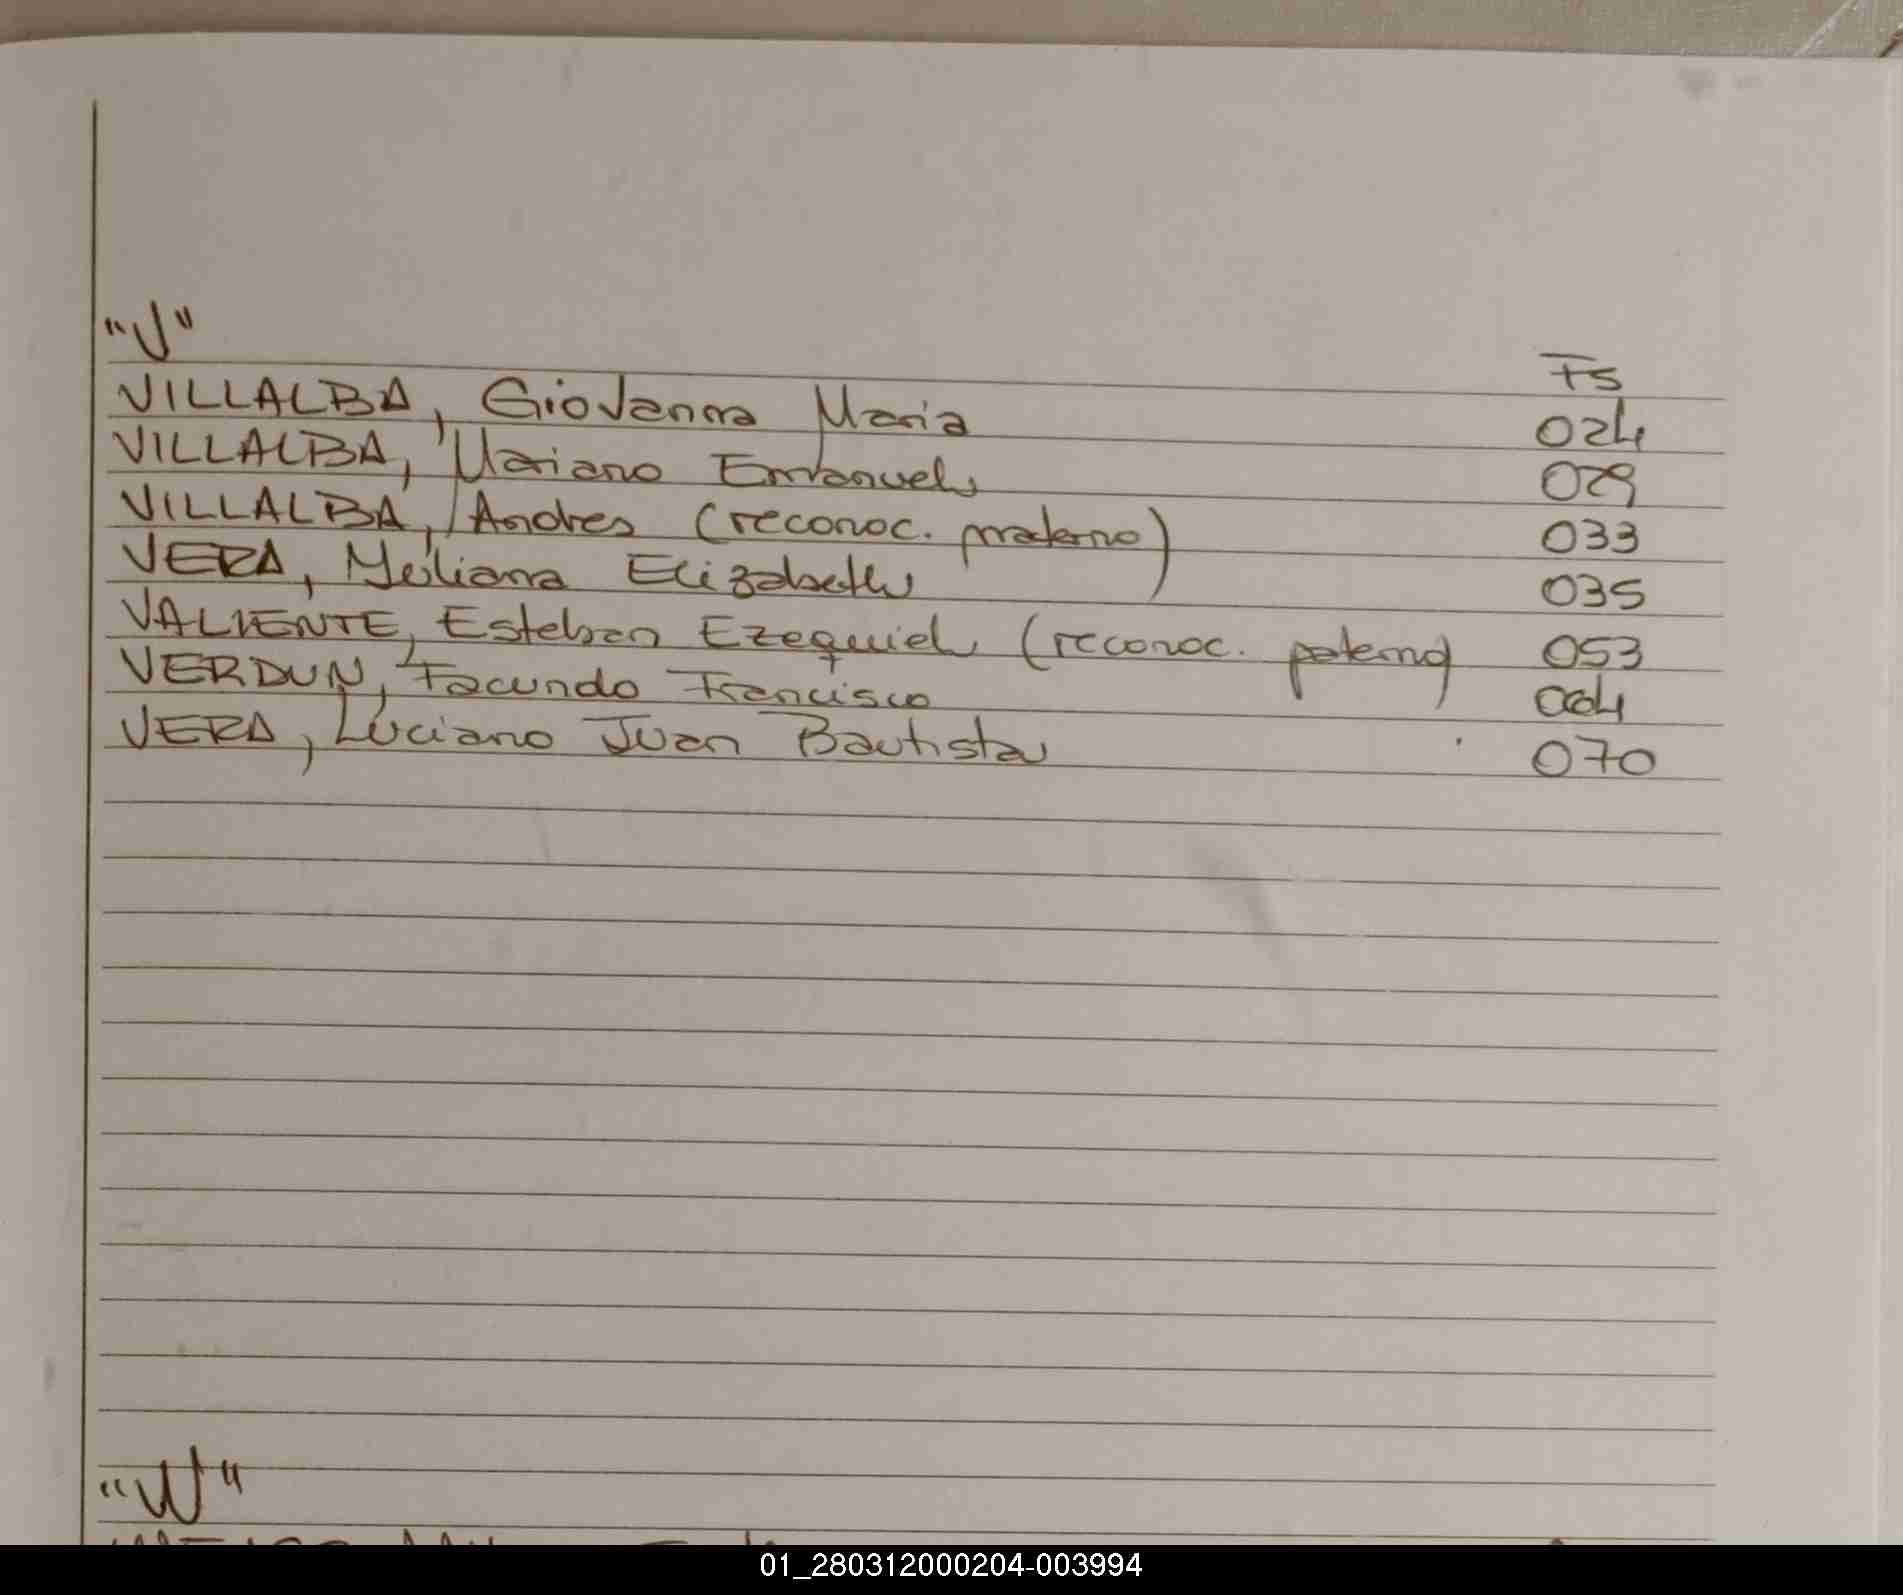 "V"
Fs
VILLALBA, Giovanna Maria 024
VILLALBA, Mariano Emanuel 029
VILLALBA, Andres (reconoc. materno) 033
VERA, Meliana Elizabeth 035
VALIENTE, Esteban Ezequiel (reconoc. paterno) 053
VERDUN, Facundo Francisco 064
VERA, Luciano Juan Bautista 070
"W"
01_280312000204-003994